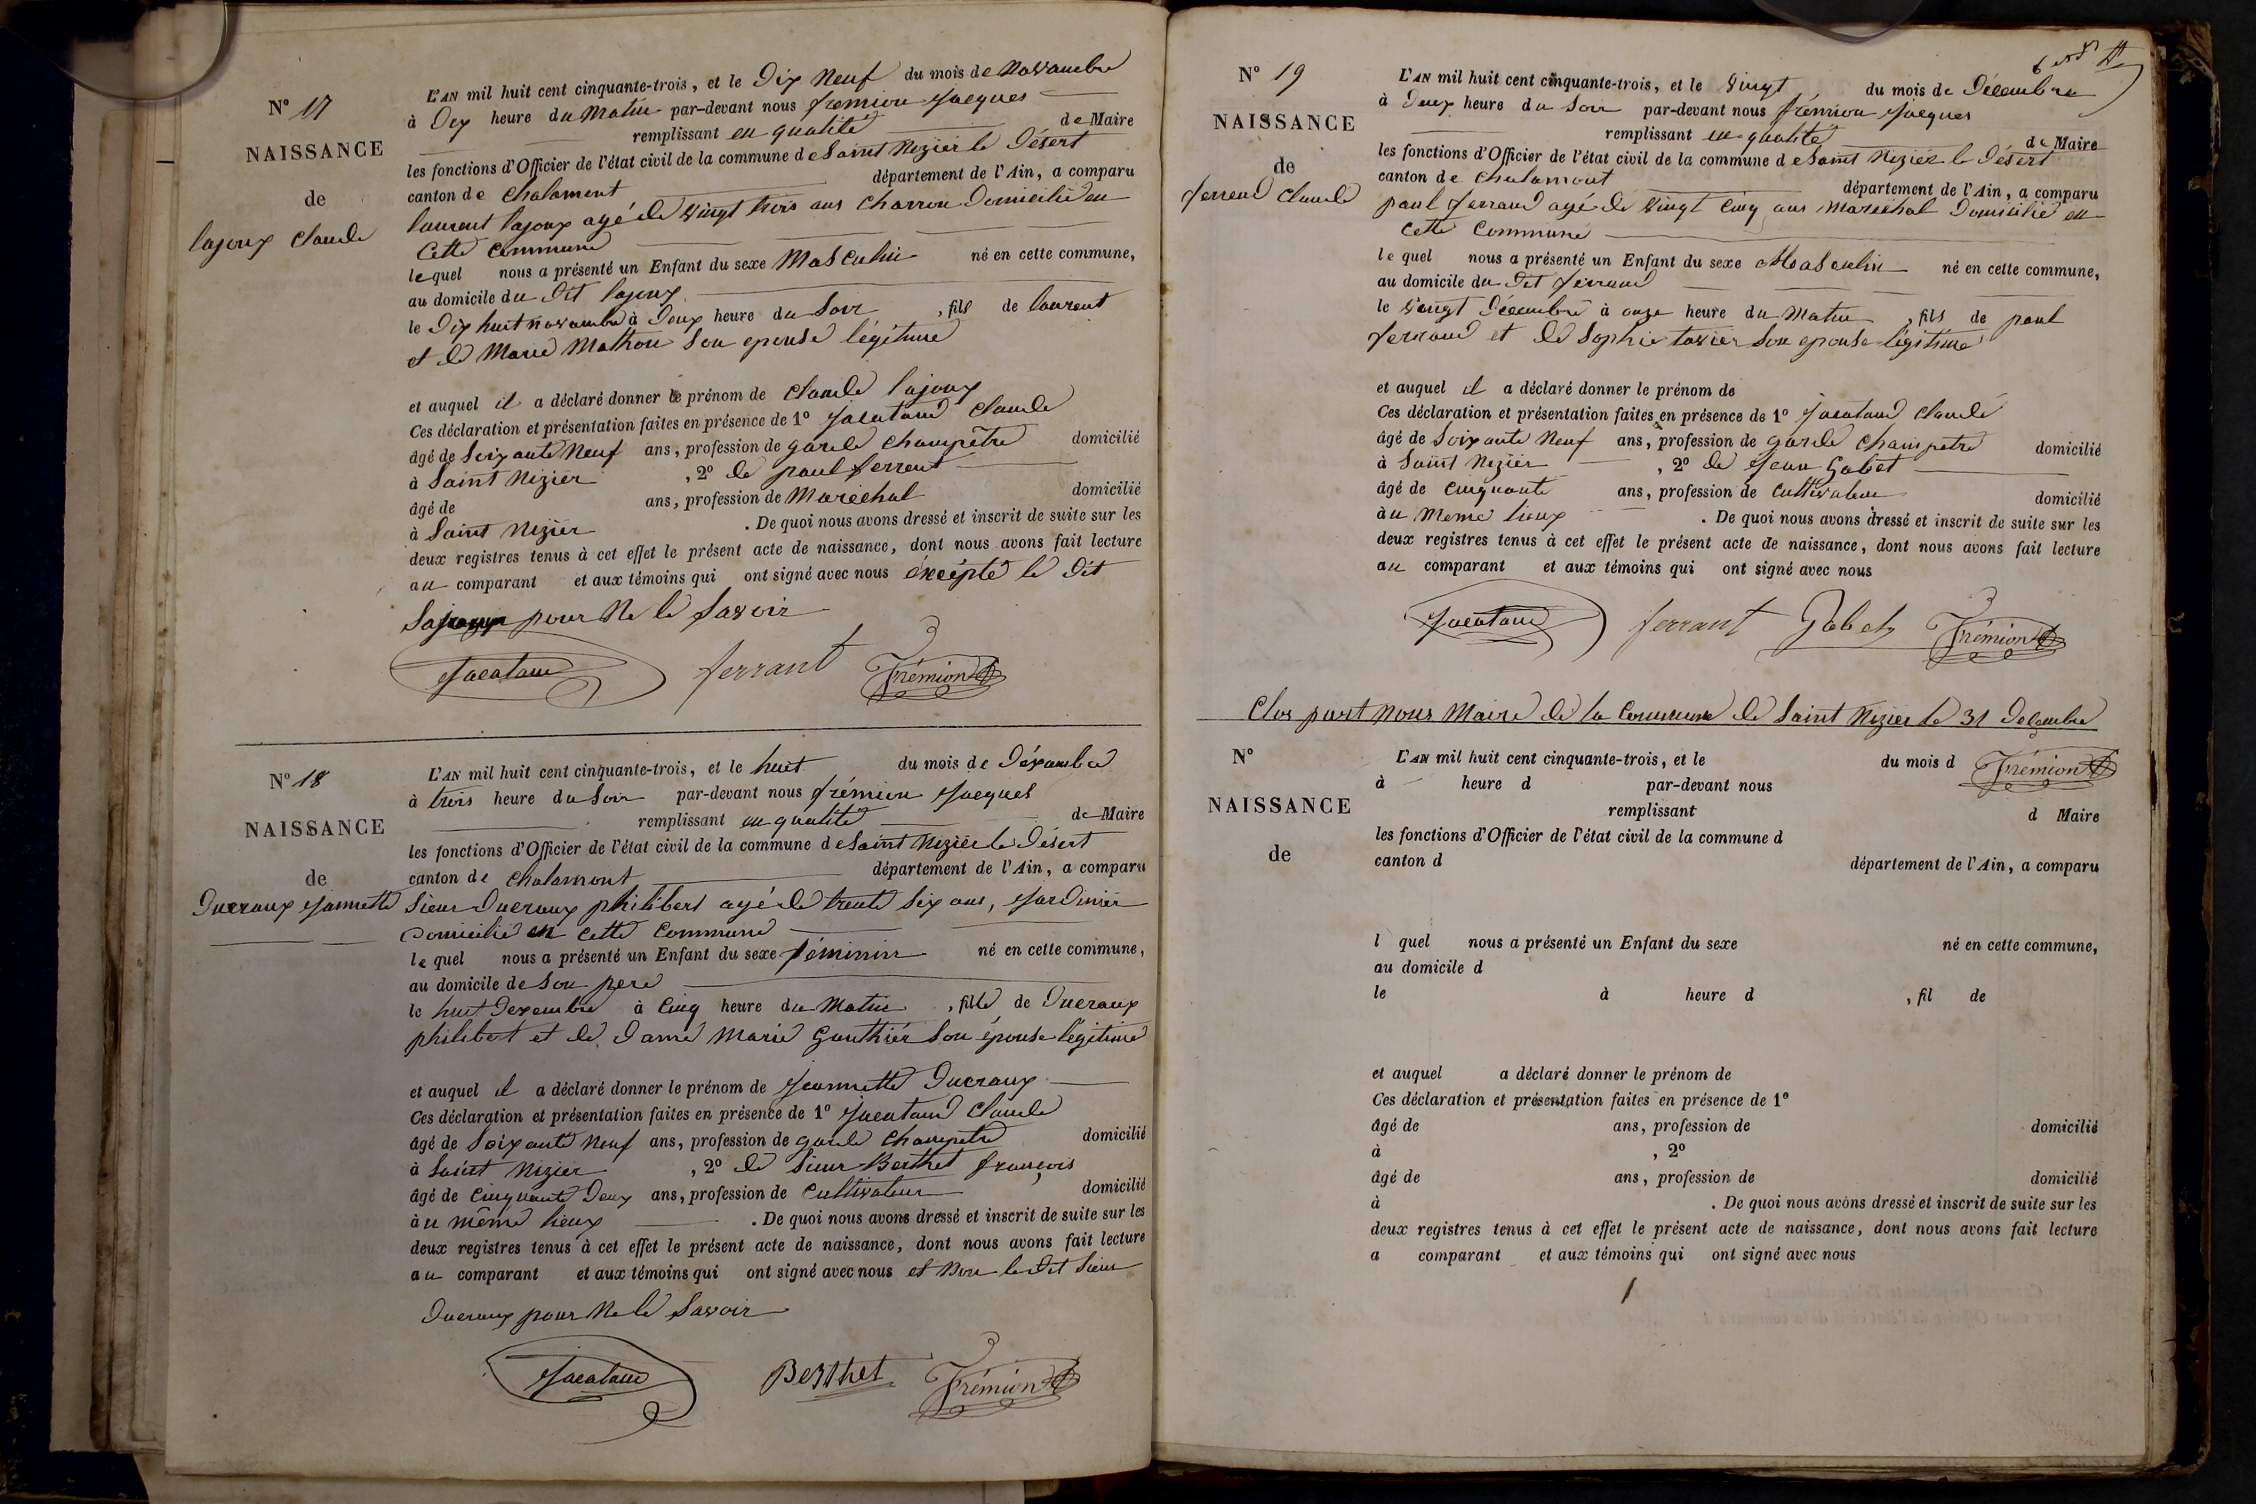 N° 17
NAISSANCE
de
lajoux Claude
L'AN mil huit cent cinquante-trois, et le Dix Neuf du mois de Novambre
à Dix heure du Matin par-devant nous fremion Jacques
remplissant en qualité de Maire
les fonctions d'Officier de l'état civil de la commune de Saint Nizier le Désert
canton de Chalamont département de l'Ain, a comparu
laurent lajoux agé de vingt trois ans Charron Domicilié en
Cette Commune
le quel nous a présenté un Enfant du sexe Masculin né en cette commune,
au domicile du Dit lajoux
le Dix huit novambre à Deux heure du Soir, fils de laurent
et de Marie Mathon Son epouse légitime
et auquel il a déclaré donner le prénom de Claude lajoux
Ces déclaration et présentation faites en présence de 1° Jacataud Claude
âgé de Soixante Neuf ans, profession de garde Champêtre domicilié
à Saint Nizier, 2° de paul ferrent
âgé de ans, profession de Maréchal domicilié
à Saint Nizier. De quoi nous avons dressé et inscrit de suite sur les
deux registres tenus à cet effet le présent acte de naissance, dont nous avons fait lecture
au comparant et aux témoins qui ont signé avec nous éxcépté le Dit
Lajoux pour Ne le Savoir
Jacataud ferrant Frémion
N° 18
NAISSANCE
de
Ducraux Jannette
L'AN mil huit cent cinquante-trois, et le huit du mois de Déxambre
à trois heure du Soir par-devant nous frémion Jacques
remplissant en qualité de Maire
les fonctions d'Officier de l'état civil de la commune de Saint Nizier le Désert
canton de Chalamont département de l'Ain, a comparu
Sieur Ducraux philibert agé de trente Six ans, Jardinier
Domicilié en cette Commune
le quel nous a présenté un Enfant du sexe féminin né en cette commune,
au domicile de Son pere
le huit Dexembre à Cinq heure du Matin, fille de Ducraux
philibert et de Dame Marie Gauthiér Son épouse légitime
et auquel il a déclaré donner le prénom de Jeannette Ducraux
Ces déclaration et présentation faites en présence de 1° Jacataud Claude
âgé de Soixante Neuf ans, profession de garde Champetre domicilié
à Saint Nizier, 2° de Sieur Berthet françois
âgé de Cinquante Deux ans, profession de Cultivateur domicilié
à u même lieux. De quoi nous avons dressé et inscrit de suite sur les
deux registres tenus à cet effet le présent acte de naissance, dont nous avons fait lecture
au comparant et aux témoins qui ont signé avec nous et Non le dit Sieur
Ducraux pour Ne le Savoir
Jacataud Berthet Frémion
N° 19
NAISSANCE
de
ferrend Claude
L'AN mil huit cent cinquante-trois, et le Vingt du mois de Décembre
à Deux heure du Soir par-devant nous frémion Jacques
remplissant en qualité de Maire
les fonctions d'Officier de l'état civil de la commune de Saint Nizier le Désert
canton de Chalamont département de l'Ain, a comparu
paul ferrand agé de Vingt Cinq ans Maréchal Domicilié en
cette Commune
le quel nous a présenté un Enfant du sexe Masculin né en cette commune,
au domicile du Dit ferrand
le Vingt Décembre à onze heure du Matin, fils de paul
ferrand et de Sophie tavier Son epouse légitime
et auquel il a déclaré donner le prénom de
Ces déclaration et présentation faites en présence de 1° Jacataud Claude
âgé de Soixante Neuf ans, profession de garde Champetre domicilié
à Saint Nizier, 2° de Jean Gobet
âgé de Cinquante ans, profession de Cultivateur domicilié
à u Meme lieux. De quoi nous avons dressé et inscrit de suite sur les
deux registres tenus à cet effet le présent acte de naissance, dont nous avons fait lecture
au comparant et aux témoins qui ont signé avec nous
Jacataud ferrant Gobet Frémion
Clos part Nous Maire de la Commune de Saint Nizier le 31 Decembre
Frémion
N°
NAISSANCE
de
L'AN mil huit cent cinquante-trois, et le du mois d
à heure d par-devant nous
remplissant d Maire
les fonctions d'Officier de l'état civil de la commune d
canton d département de l'Ain, a comparu
l quel nous a présenté un Enfant du sexe né en cette commune,
au domicile d
le à heure d, fil de
et auquel a déclaré donner le prénom de
Ces déclaration et présentation faites en présence de 1°
âgé de ans, profession de domicilié
à, 2°
âgé de ans, profession de domicilié
à. De quoi nous avons dressé et inscrit de suite sur les
deux registres tenus à cet effet le présent acte de naissance, dont nous avons fait lecture
a comparant et aux témoins qui ont signé avec nous